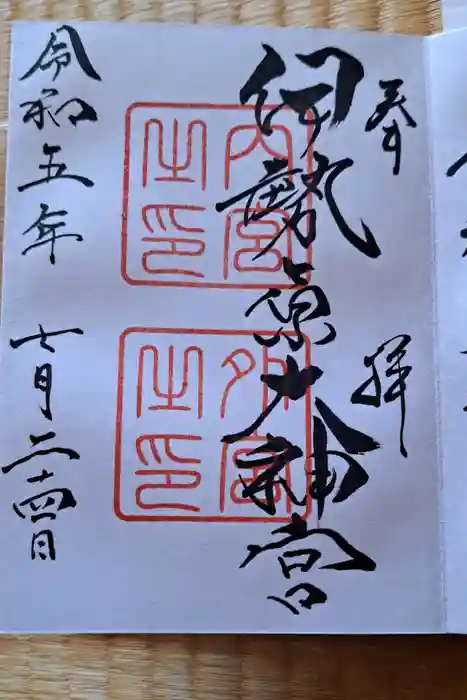 奉拝
伊勢原大神宮
内宮
之印
外宮
之印
令和五年七月二十四日